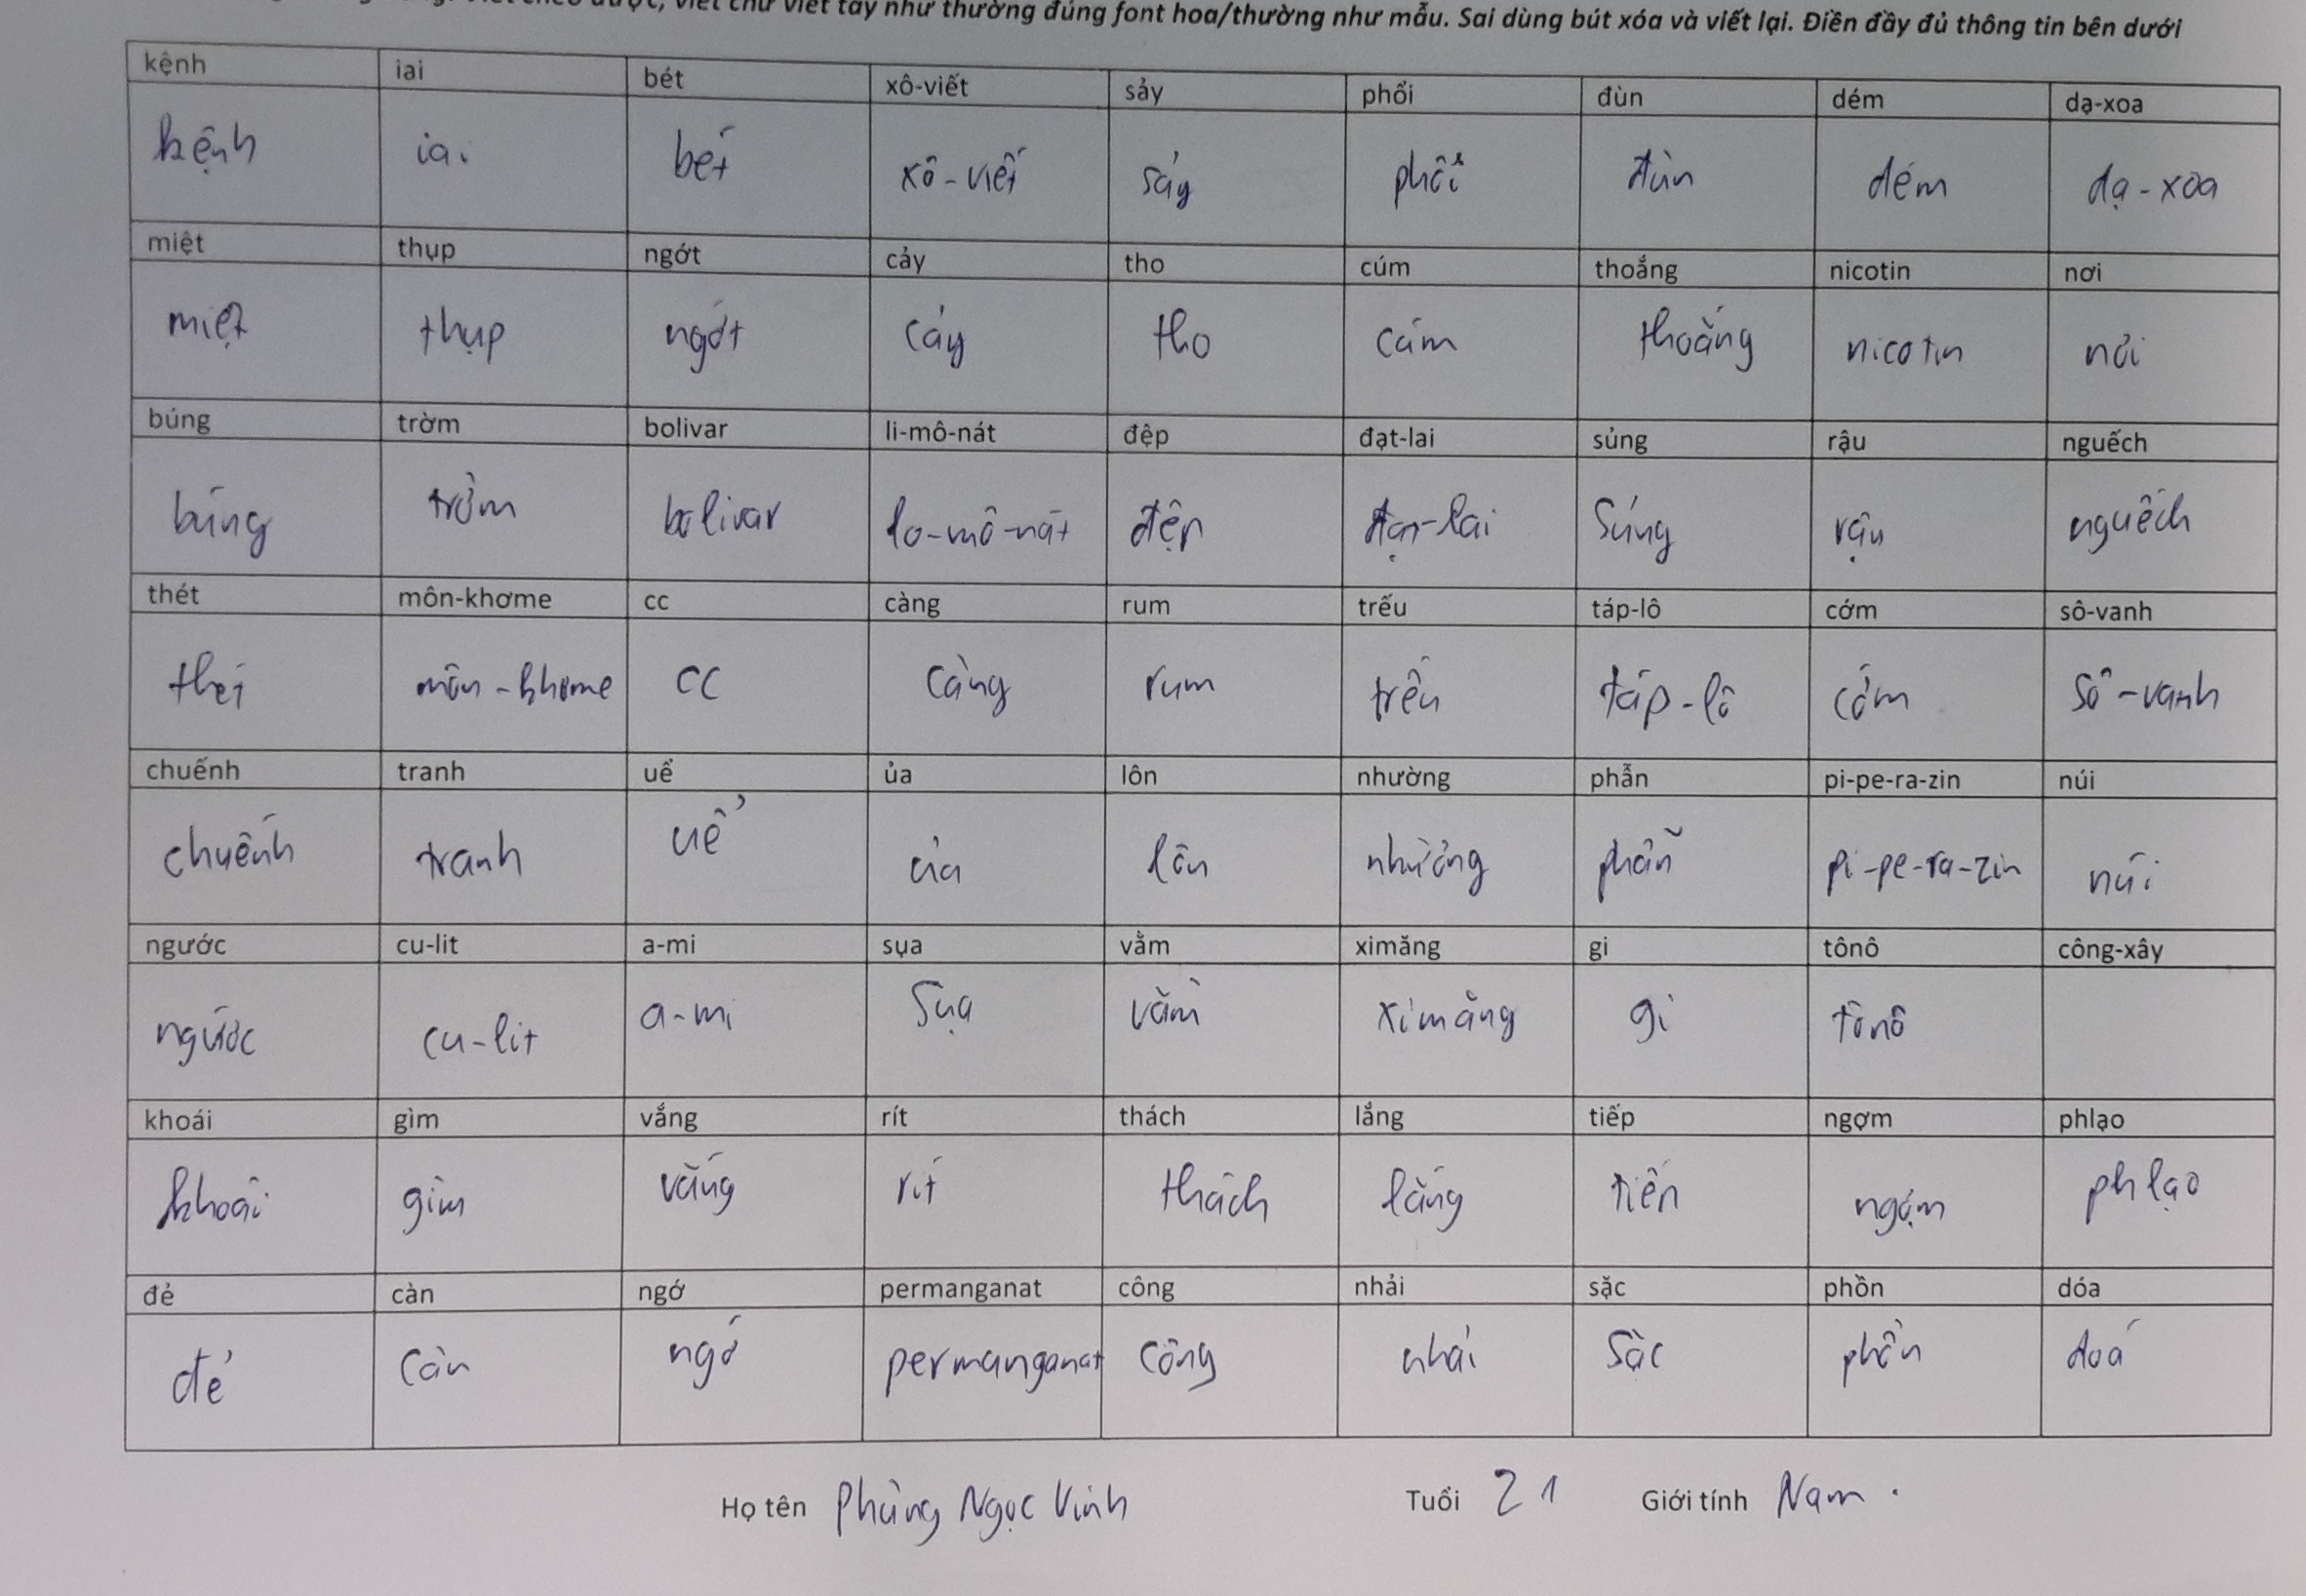 viết chữ viết tay như thường đúng font hoa/thường như mẫu. Sai dùng bút xóa và viết lại. Điền đầy đủ thông tin bên dưới
kệnh iai bét xô-viết sảy phổi đùn dém dạ-xoa
kệnh iai bét xô-viết sảy phổi đùn dém dạ-xoa
miệt thụp ngớt cảy tho cúm thoắng nicotin nơi
miệt thụp ngớt cảy tho cúm thoắng nicotin nơi
búng tròm bolivar li-mô-nát đệp đạt-lai sủng rậu nguếch
búng tròm bolivar lo-mô-nát đệp đạt-lai sủng rậu nguếch
thét môn-khơme cc càng rum trếu táp-lô cớm sô-vanh
thét môn-khơme cc càng rum trếu táp-lô cớm sô-vanh
chuếnh tranh uể ủa lôn nhường phẫn pi-pe-ra-zin núi
chuếnh tranh uể ủa lôn nhường phẫn pi-pe-ra-zin núi
ngước cu-lit a-mi sụa vằm ximăng gi tônô công-xây
ngước cu-lit a-mi sụa vằm ximăng gi tônô
khoái gìm vắng rít thách lắng tiếp ngợm phlạo
khoái gìm vắng rít thách lắng tiếp ngợm phlạo
đẻ càn ngớ permanganat công nhải sặc phồn dóa
đẻ càn ngớ permanganat công nhải sặc phồn doá
Họ tên Phùng Ngọc Vinh Tuổi 21 Giới tính Nam.